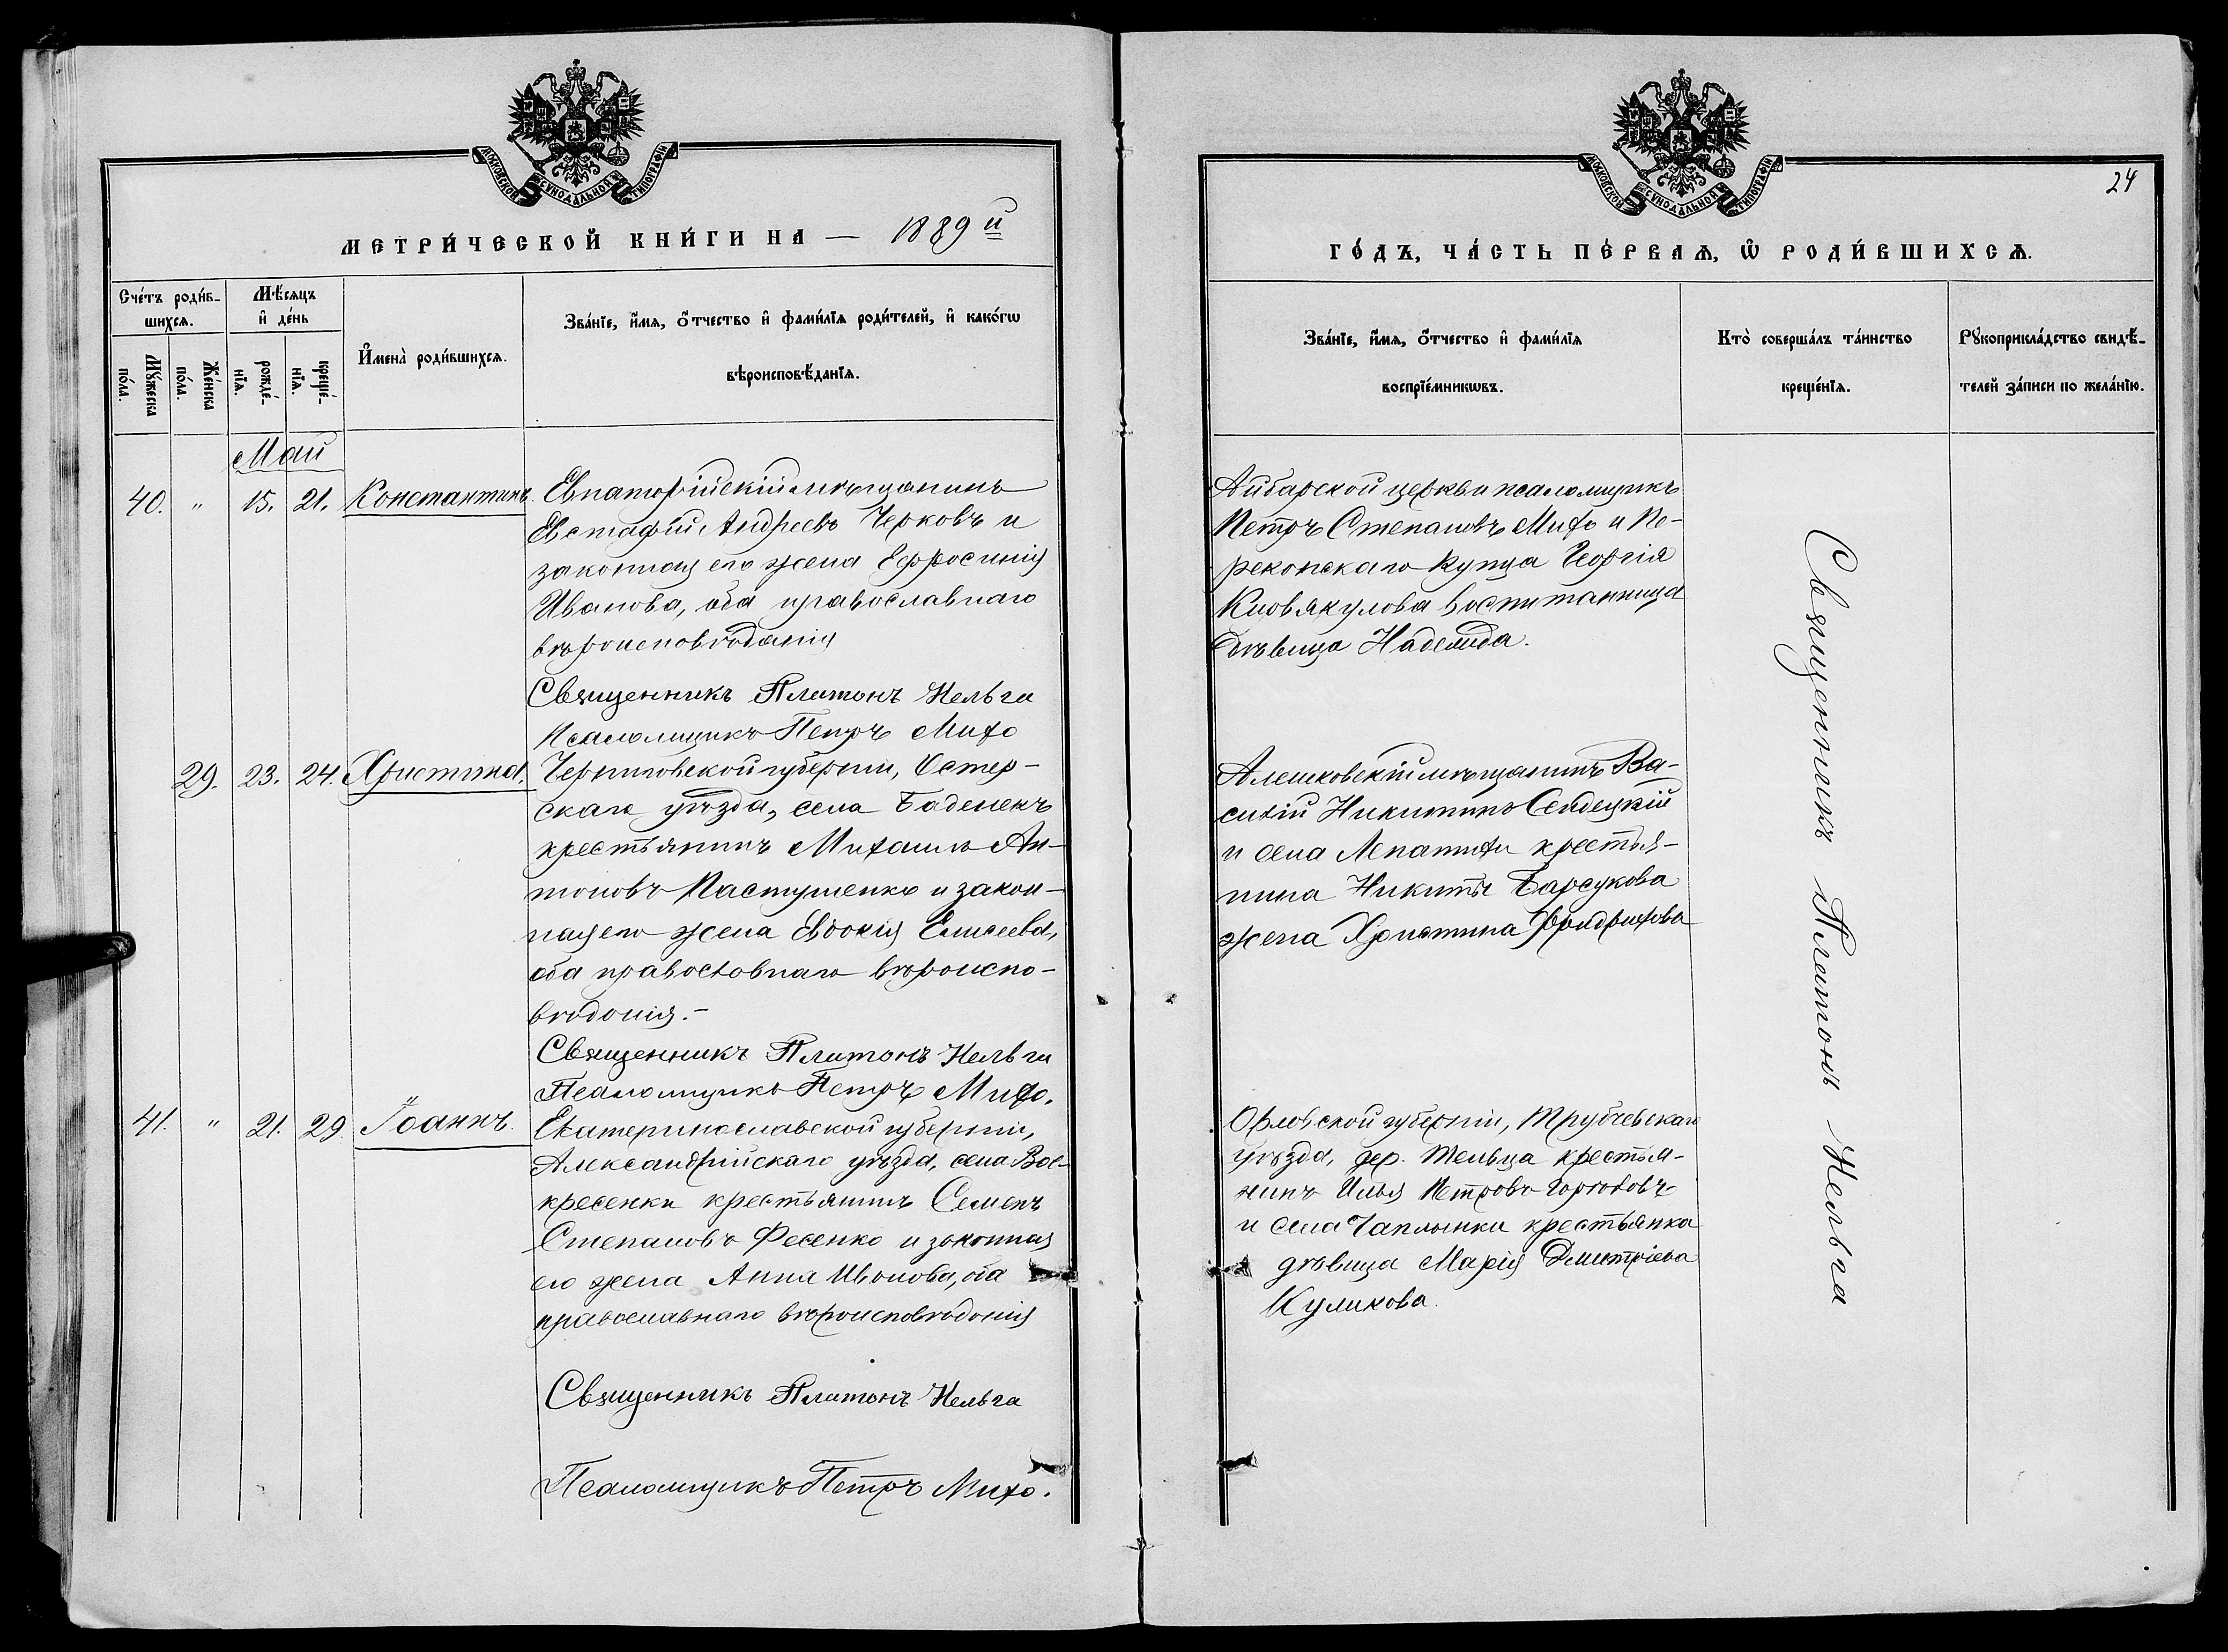 МОСКОВСКОЙ СѴНОДАЛЬНОЙ ТИПОГРАФІИ
МЕТРИ́ЧЕСКОЙ КНИ́ГИ НА — 1889 й
Сче́тъ роди́в-
шихсѧ.
Мѣ́сѧцъ
и҆ де́нь
Мꙋ́жеска
по́ла.
Же́нска
по́ла.
рожде́-
нїѧ.
креще́-
нїѧ.
И҆мена̀ роди́вшихсѧ.
Зва́нїе, и҆́мѧ, ѻ҆́тчество и҆ фами́лїѧ роди́телей, и҆ како́гѡ
вѣроисповѣ́данїѧ.
Май
40. " 15. 21. Константинъ.
Евпаторійскій мѣщанинъ
Евстафій Андреевъ Черковъ и
законная его жена Ефросинія
Иванова, оба православнаго
вѣроисповѣданія
Священникъ Платонъ Кельга
Псаломщикъ Петръ Михо
29. 23. 24. Христина.
Черниговской губерніи, Остер-
скаго уѣзда, села Баденекъ
крестьянинъ Михаилъ Ан-
тоновъ Пастушенко и закон-
ная его жена Евдокія Елисеева,
оба православнаго вѣроиспо-
вѣданія.-
Священникъ Платонъ Кельга
Псаломщикъ Петръ Михо.
41. " 21. 29. Іоаннъ.
Екатеринославской губерніи,
Александрійскаго уѣзда, села Вос-
кресенки крестьянинъ Семенъ
Степановъ Фесенко и законная
его жена Анна Иванова, оба
православнаго вѣроисповѣданія
Священникъ Платонъ Кельга
Псаломщикъ Петръ Михо.
МОСКОВСКОЙ СѴНОДАЛЬНОЙ ТИПОГРАФІИ
24
ГО́ДЪ, ЧА́СТЬ ПЕ́РВАѦ, Ѡ҆ РОДИ́ВШИХСѦ.
Зва́нїе, и҆́мѧ, ѻ҆́тчество и҆ фами́лїѧ
воспрїе́мникѡвъ.
Кто̀ соверша́лъ та́инство
креще́нїѧ.
Рꙋкоприкла́дство свидѣ́-
телей за́писи по жела́нїю.
Айбарской церкви псаломщикъ
Петръ Степановъ Михо и Пе-
рекопскаго купца Георгія
воспитанница
дѣвица Надежда.
Алешковскій мѣщанинъ Ва-
силій Никитинъ
и села Лепатихи крестья-
нина Никиты Барсукова
жена Христина Фридрихова
Орловской губерніи, Трубчевскаго
уѣзда, дер. Тельца крестья-
нинъ Илья Петровъ Горюховъ
и села Чаплынки крестьянка
дѣвица Марія Дмитріева
Куликова.
Священникъ Платонъ Кельга